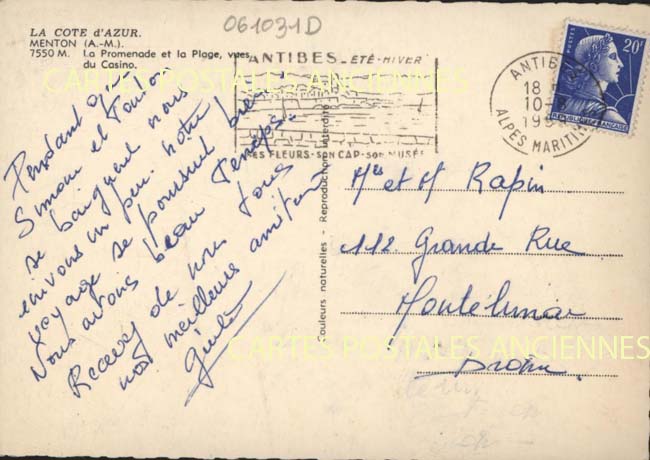 061031D
LA COTE d'AZUR.
MENTON (A.-M.).
7550 M. La Promenade et la Plage, vues
du Casino.
ANTIBES - ÉTÉ-HIVER
SES FLEURS-SON CAP-SON MUSÉE
ANTIBES
18
10
19
ALPES MARITIMES
20F
REPUBLIQUE FRANCAISE
CARTES POSTALES ANCIENNES
Pendant que
Simone et
se baignent nous
écrivons un peu. Notre
voyage se poursuit bien
Nous avons beau temps.
Recevez de nous tous
nos meilleures amitiés
Couleurs naturelles - Reproduction interdite
Mr et Me Rapin
112 Grande Rue
Montélimar
Drôme
CARTES POSTALES ANCIENNES